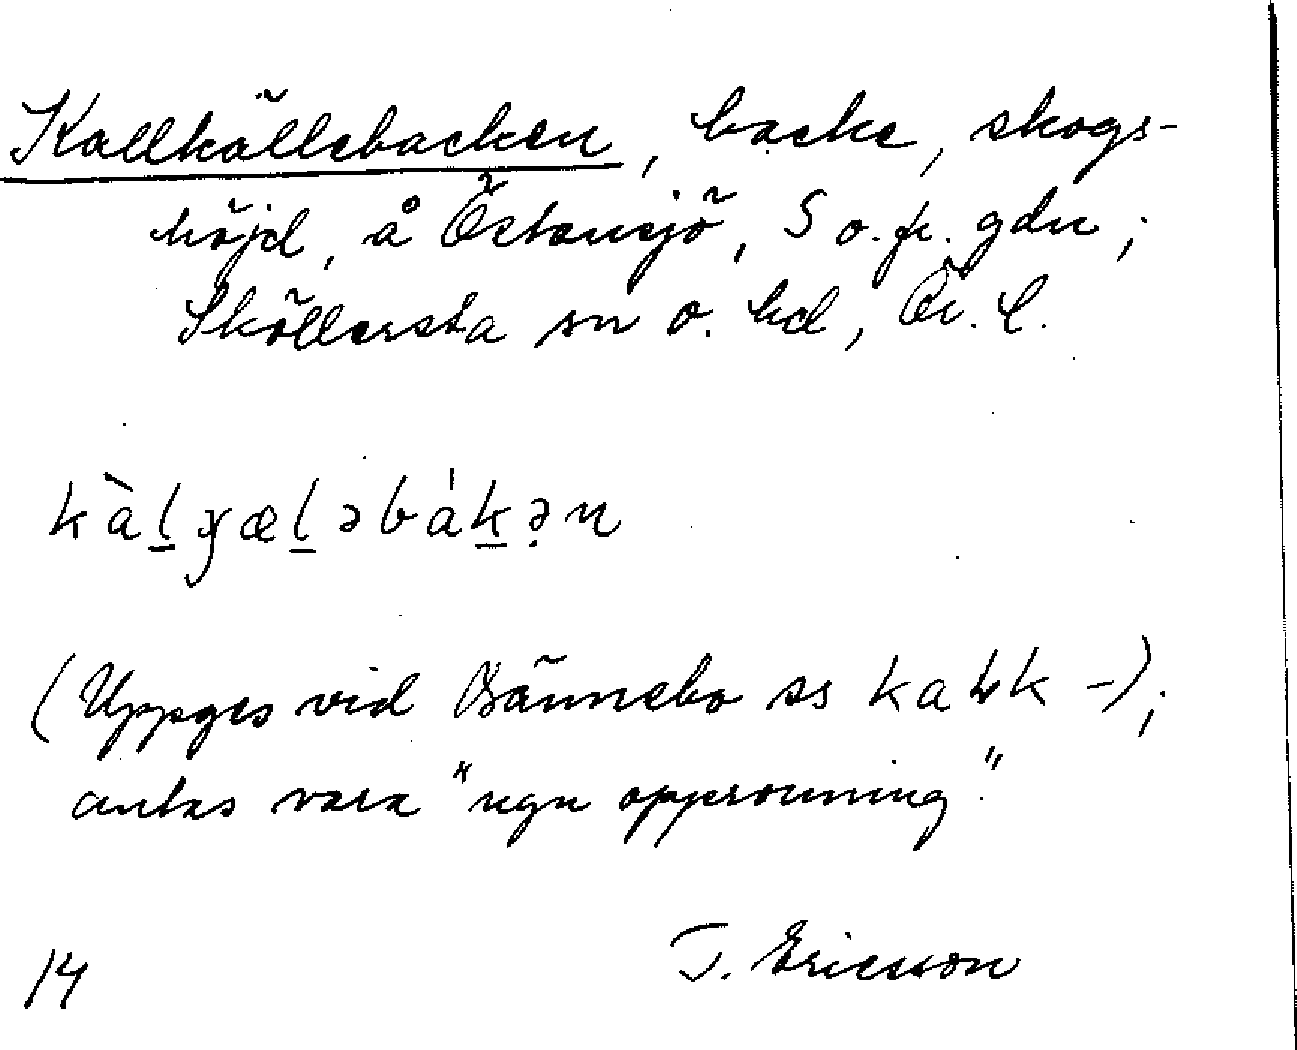 Kallkällebacken, backe, skogs-
höjd, å Östansjö, S o. fr. gdn;
Sköllersta sn o. hd, Ör. l.
kàl̲ɣæl̲əbák̲ə̣n
(Uppges vid Bännebo ss kaƚk-);
antas vara "ngn opprunning"
14
T. Ericsson